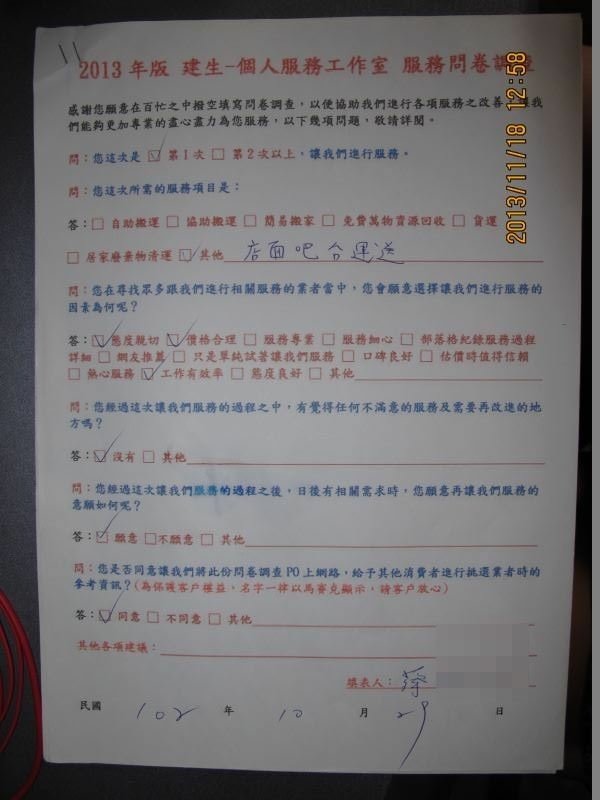 11
2013 年版 建生-個人服務工作室 服務問卷調查
感謝您願意在百忙之中撥空填寫問卷調查，以便協助我們進行各項服務之改善，讓我
們能夠更加專業的盡心盡力為您服務，以下幾項問題，敬請詳閱。
問：您這次是 ☑ 第 1 次 □ 第 2 次以上，讓我們進行服務。
問：您這次所需的服務項目是：
答：□ 自助搬運 □ 協助搬運 □ 簡易搬家 □ 免費萬物資源回收 □ 貨運
□ 居家廢棄物清運 ☑ 其他 店面吧台運送
問：您在尋找眾多跟我們進行相關服務的業者當中，您會願意選擇讓我們進行服務的
因素為何呢？
答：☑ 態度親切 ☑ 價格合理 □ 服務專業 □ 服務細心 □ 部落格紀錄服務過程
詳細 □ 網友推薦 □ 只是單純試著讓我們服務 □ 口碑良好 □ 估價時值得信賴
□ 熱心服務 ☑ 工作有效率 □ 態度良好 □ 其他
問：您經過這次讓我們服務的過程之中，有覺得任何不滿意的服務及需要再改進的地
方嗎？
答：☑ 沒有 □ 其他
問：您經過這次讓我們服務的過程之後，日後有相關需求時，您願意再讓我們服務的
意願如何呢？
答：☑ 願意 □不願意 □ 其他
問：您是否同意讓我們將此份問卷調查 PO 上網路，給予其他消費者進行挑選業者時的
參考資訊？(為保護客戶權益，名字一律以馬賽克顯示，請客戶放心)
答：☑ 同意 □ 不同意 □ 其他
其他各項建議：
填表人：蔡
民國 102 年 10 月 29 日
2013/11/18 12:58